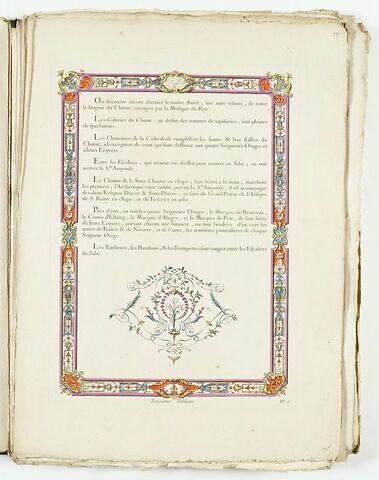 On decouvre encore derriere le maitre Autel, une autre tribune, de toute
la largeur du Chœur, occupée par la Musique du Roy.
Les Galeries du Chœur, au dessus des tentures de tapisseries, sont pleines
de spectateurs.
Les Chanoines de la Cathédrale remplissent les hauts & bas stalles du
Chœur, à l'exception de ceux qui sont destinez aux quatre Seigneurs Otages et
à leurs Ecuyers.
Entre les Escaliers, qui avoient été dressez pour monter au Jubé, on voit
arriver la Ste Ampoule.
Le Chantre & le Sous Chantre en chape, leur bâton à la main, marchent
les premiers, l'Archevêque vient ensuite portant la Ste Ampoule, il est accompagné
des deux Evêques Diacre & Sous-Diacre, et suivi du Grand Prieur de l'Abbaye
de S. Remy en chape, et du Trésorier en aube.
Près d'eux, on voit les quatre Seigneurs Otages, le Marquis de Beauvau,
le Comte d'Estaing, le Marquis d'Alegre, et le Marquis de Prie, ils sont suivis
de leurs Ecuyers, portant chacun une banniere, où sont brodées d'un côté les
armes de France & de Navarre, et de l'autre, les armoiries particulieres de chaque
Seigneur Otage.
Les Tambours, les Hautbois, & les Trompettes sont rangez entre les Escaliers
du Jubé.
Troisieme Tableau
Pl. 3